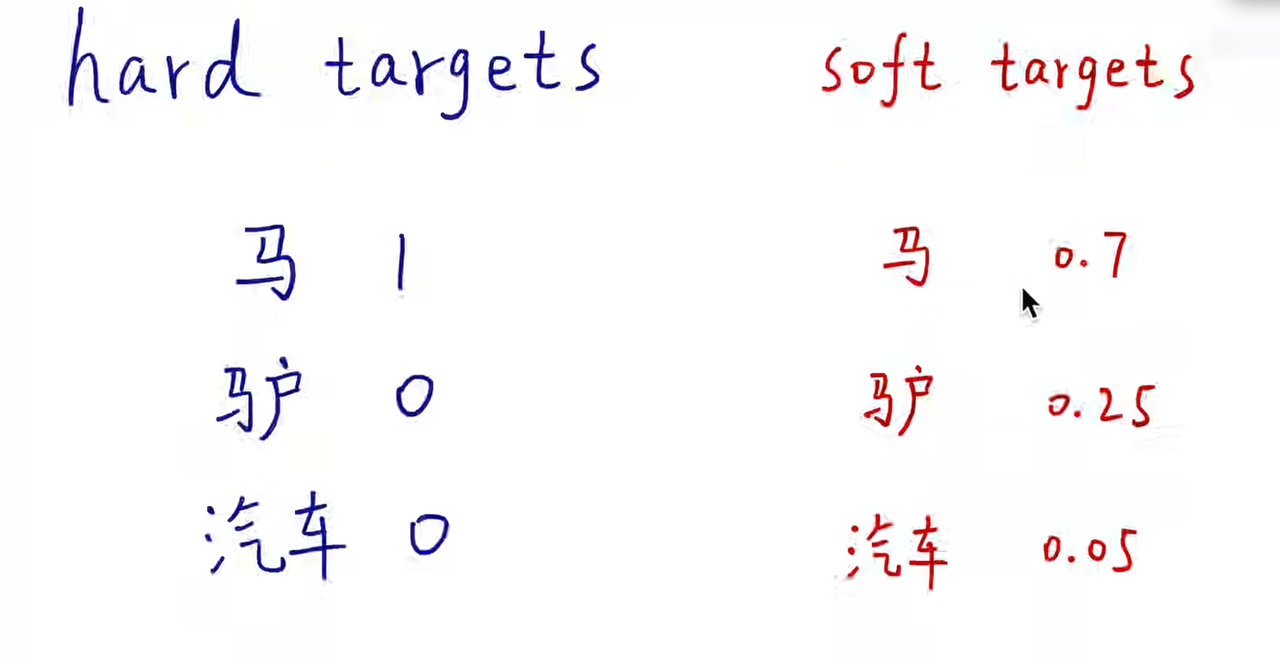 hard targets
马 1
驴 0
汽车 0
soft targets
马 0.7
驴 0.25
汽车 0.05